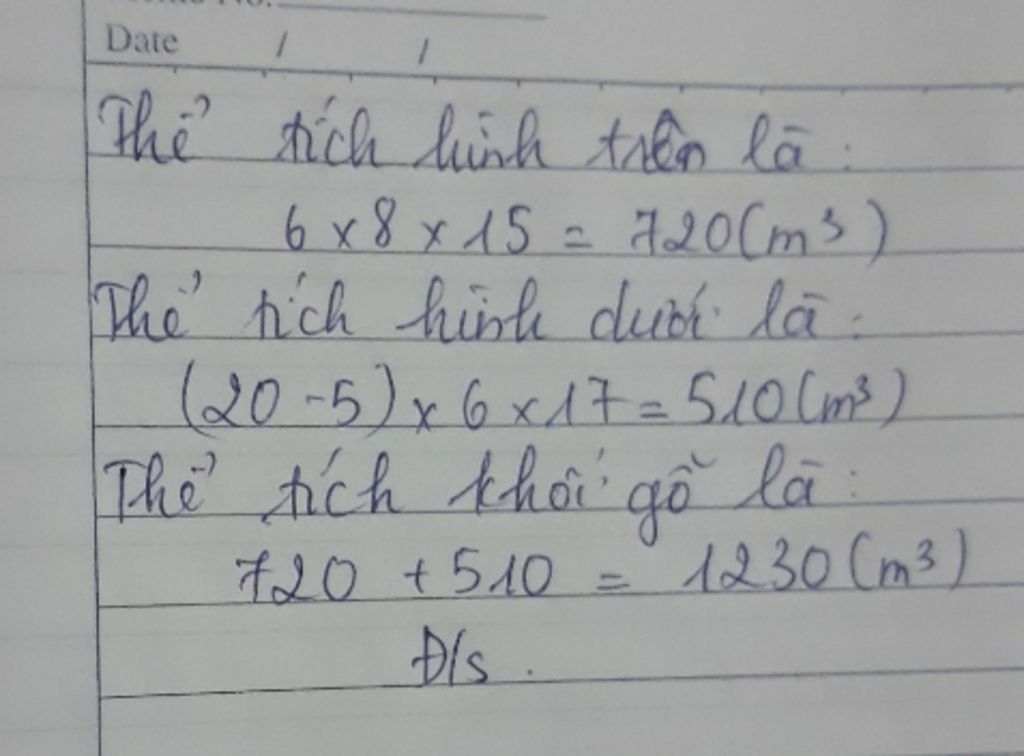 Date / /
Thể tích hình trên là :
6 x 8 x 15 = 720 (m³)
Thể tích hình dưới là :
(20 - 5) x 6 x 17 = 510 (m³)
Thể tích khối gỗ là :
720 + 510 = 1230 (m³)
Đ/s .